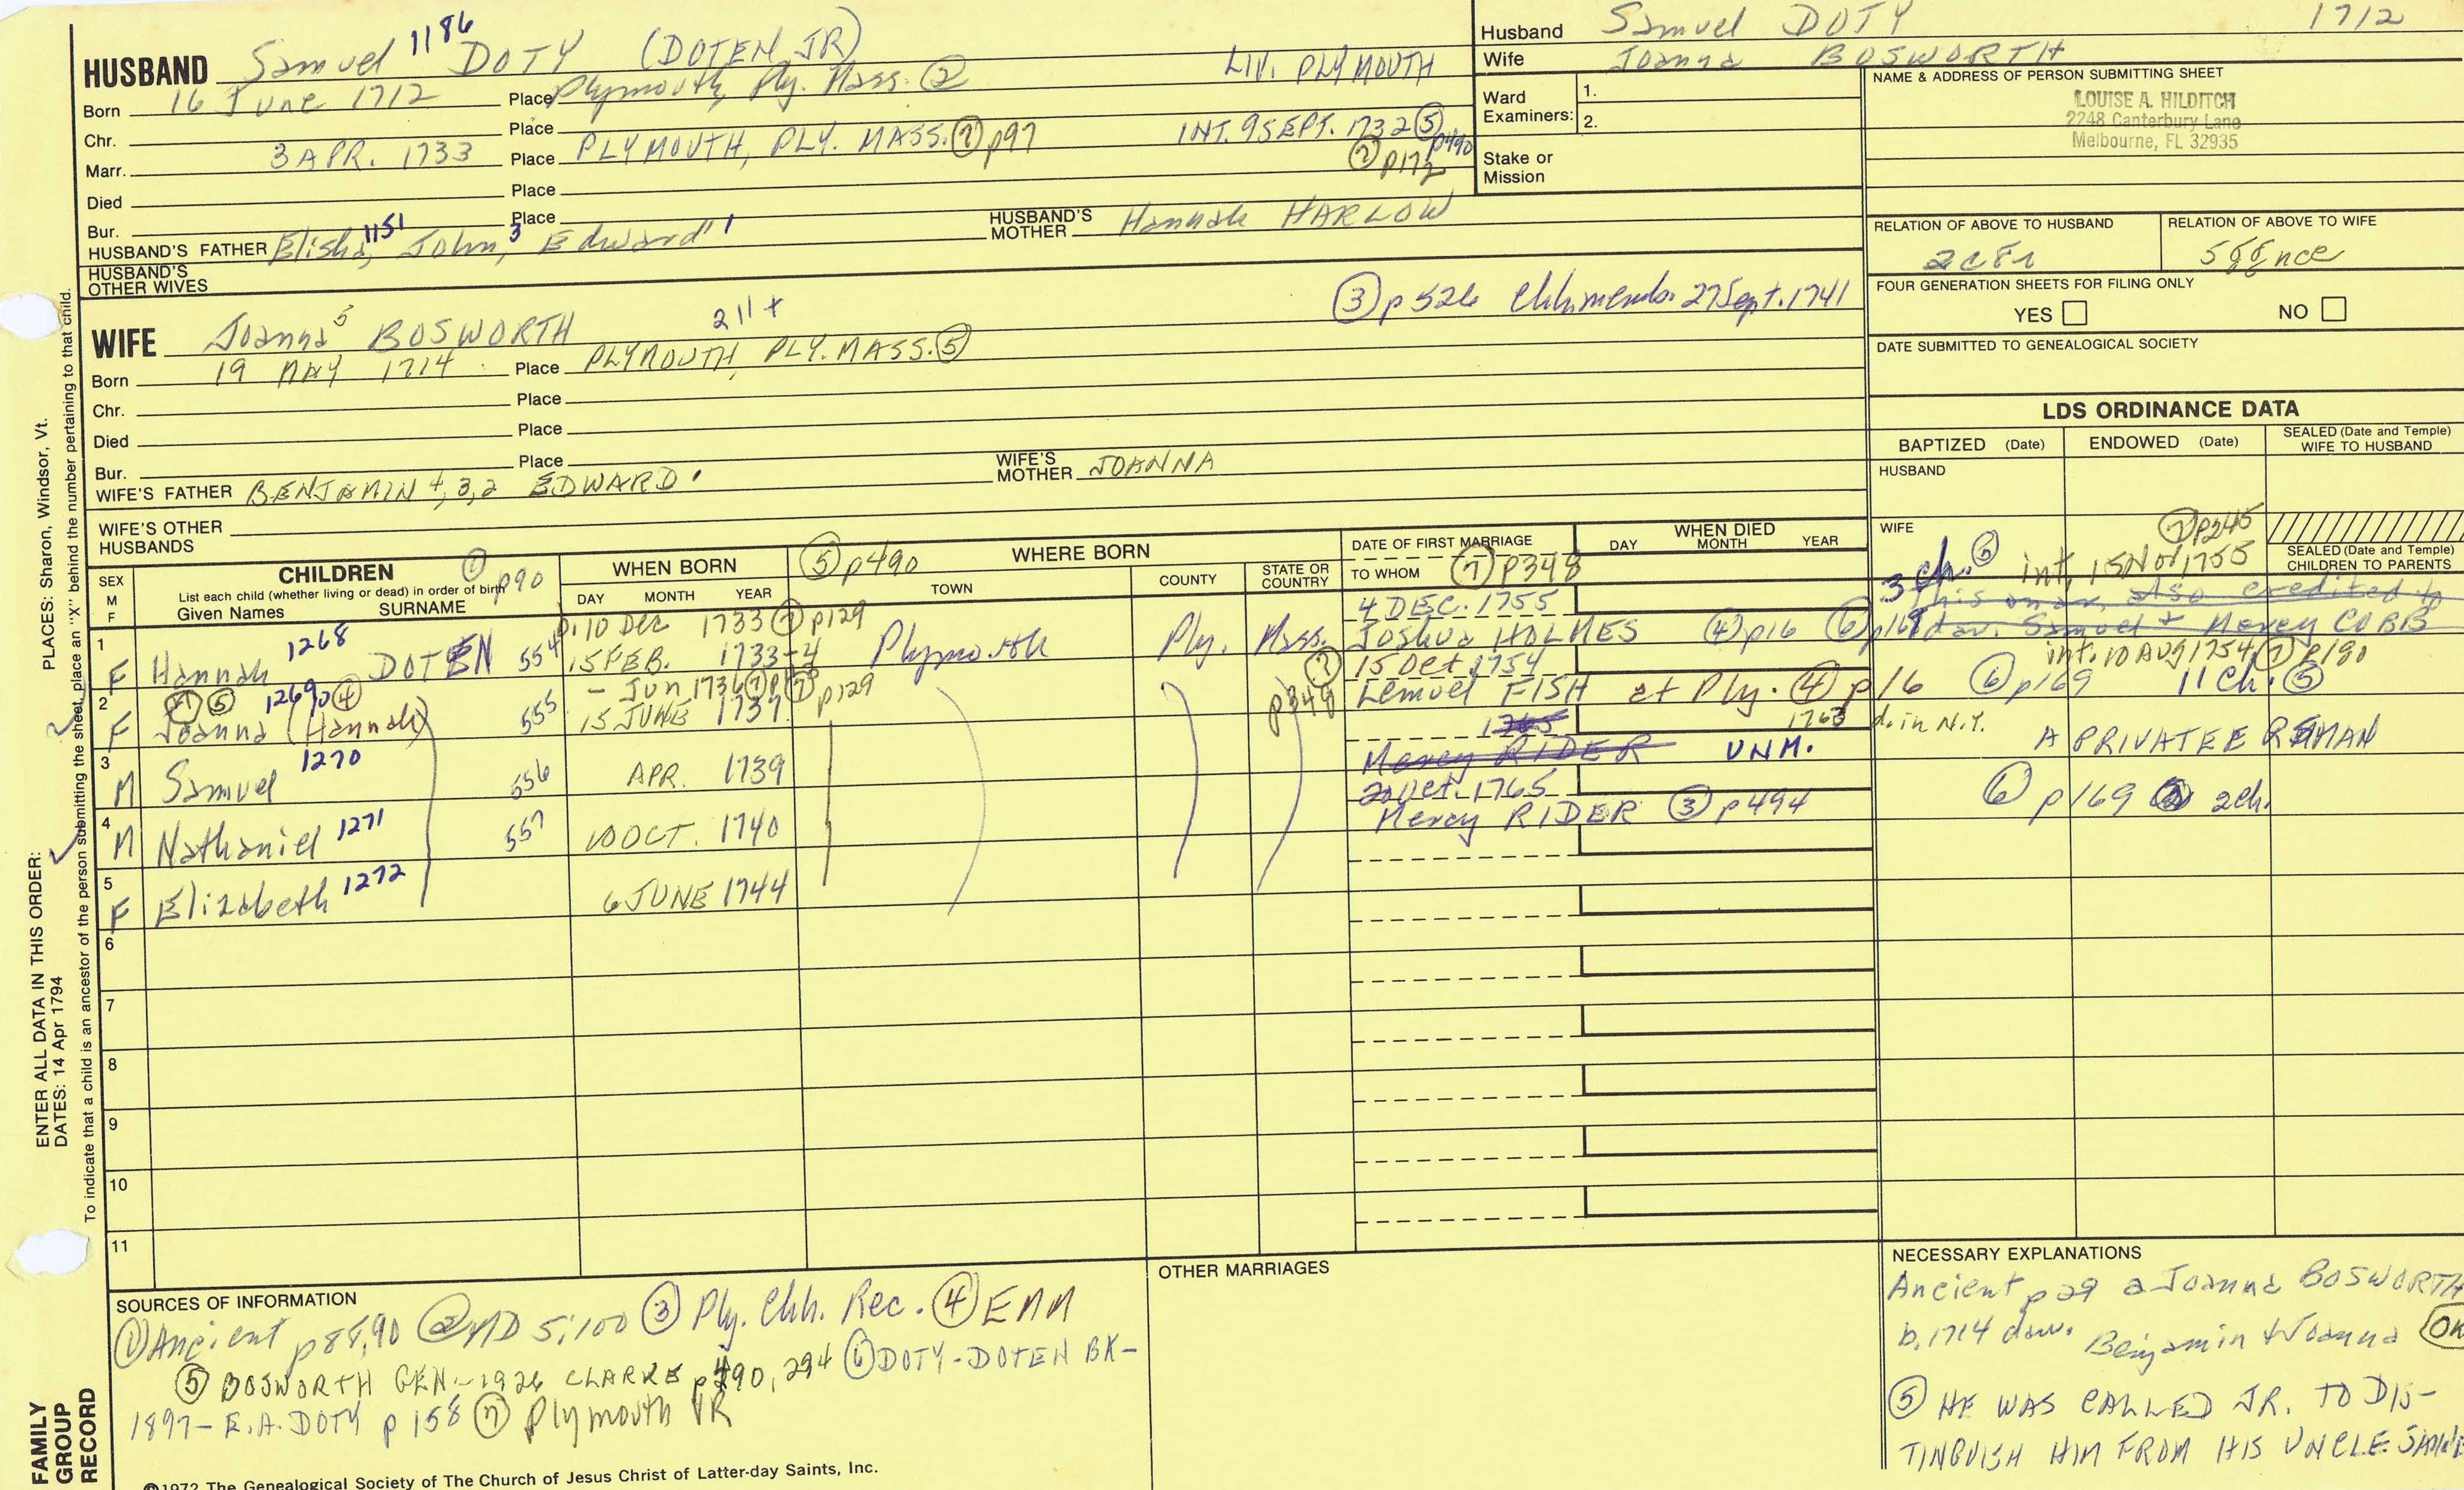 HUSBAND Samuel 1186 DOTY (DOTEN JR)
Born 16 June 1712 Place Plymouth, Ply. Mass. ② LIV. PLYMOUTH
Chr. Place
Marr. 3 APR. 1733 Place PLYMOUTH, PLY. MASS. ⑦ p97 INT. 9 SEPT. 1732 ⑤ p490
⑦ p172
Died Place
Bur. Place
HUSBAND'S FATHER Elisha, 1151 John, 3 Edward 1 HUSBAND'S MOTHER Hannah HARLOW
HUSBAND'S OTHER WIVES
Husband Samuel DOTY 1712
Wife Joanna BOSWORTH
Ward Examiners: 1.
2.
Stake or Mission
NAME & ADDRESS OF PERSON SUBMITTING SHEET
LOUISE A. HILDITCH
2248 Canterbury Lane
Melbourne, FL 32935
RELATION OF ABOVE TO HUSBAND RELATION OF ABOVE TO WIFE
FOUR GENERATION SHEETS FOR FILING ONLY
YES NO
DATE SUBMITTED TO GENEALOGICAL SOCIETY
③ p 526 Chh. memb. 27 Sept. 1741
WIFE Joanna 5 BOSWORTH 211+
Born 19 MAY 1714 Place PLYMOUTH, PLY. MASS. ⑤
Chr. Place
Died Place
Bur. Place
WIFE'S FATHER BENJAMIN 4,3,2 EDWARD 1 WIFE'S MOTHER JOANNA
WIFE'S OTHER HUSBANDS
LDS ORDINANCE DATA
BAPTIZED (Date) ENDOWED (Date) SEALED (Date and Temple) WIFE TO HUSBAND
HUSBAND
WIFE ⑦ p245
SEALED (Date and Temple) CHILDREN TO PARENTS
3 ch. ⑤ int. 15 Nov 1755
SEX M F
CHILDREN ① p90
List each child (whether living or dead) in order of birth
Given Names SURNAME
WHEN BORN
DAY MONTH YEAR
⑤ p490 WHERE BORN
TOWN COUNTY STATE OR COUNTRY
DATE OF FIRST MARRIAGE
TO WHOM ⑦ p348
WHEN DIED
DAY MONTH YEAR
10 Dec 1733 ⑦ p129 4 DEC. 1755
1 F Hannah 1268 DOTEN 554 15 FEB. 1733-4 Plymouth Ply. Mass. Joshua HOLMES ④ p16 ⑥ p168
This mar. also credited to
dau. Samuel + Mercy COBB
- Jun 1736 ⑦ p129 ⑦ p348 15 Oct. 1754 int. 10 AUG 1754 ⑦ p190
2 F ① ⑤ 1269 ④ Joanna (Hannah) 555 15 JUNE 1737 Lemuel FISH at Ply. ④ p16 ⑥ p169 11 ch. ⑤
1765 1763 d. in N.Y.
3 M Samuel 1270 556 APR. 1739 Mercy RIDER UNM. A PRIVATEERSMAN
20 Oct. 1765
4 M Nathaniel 1271 557 10 OCT. 1740 Mercy RIDER ③ p494 ⑥ p169 2 ch.
5 F Elizabeth 1272 6 JUNE 1744
6
7
8
9
10
11
SOURCES OF INFORMATION
① Ancient p88,90 ② MD 5:100 ③ Ply. Chh. Rec. ④ EMM
⑤ BOSWORTH GEN-1926 CLARKE p490, 294 ⑥ DOTY-DOTEN BK-
1897- E.A. DOTY p 158 ⑦ Plymouth VR
OTHER MARRIAGES
NECESSARY EXPLANATIONS
Ancient p29 a Joanna BOSWORTH
b. 1714 dau. Benjamin + Joanna OK
⑤ HE WAS CALLED JR. TO DIS-
TINGUISH HIM FROM HIS UNCLE
©1972 The Genealogical Society of The Church of Jesus Christ of Latter-day Saints, Inc.
FAMILY GROUP RECORD
ENTER ALL DATA IN THIS ORDER:
DATES: 14 Apr 1794
PLACES: Sharon, Windsor, Vt.
To indicate that a child is an ancestor of the person submitting the sheet, place an "X" behind the number pertaining to that child.